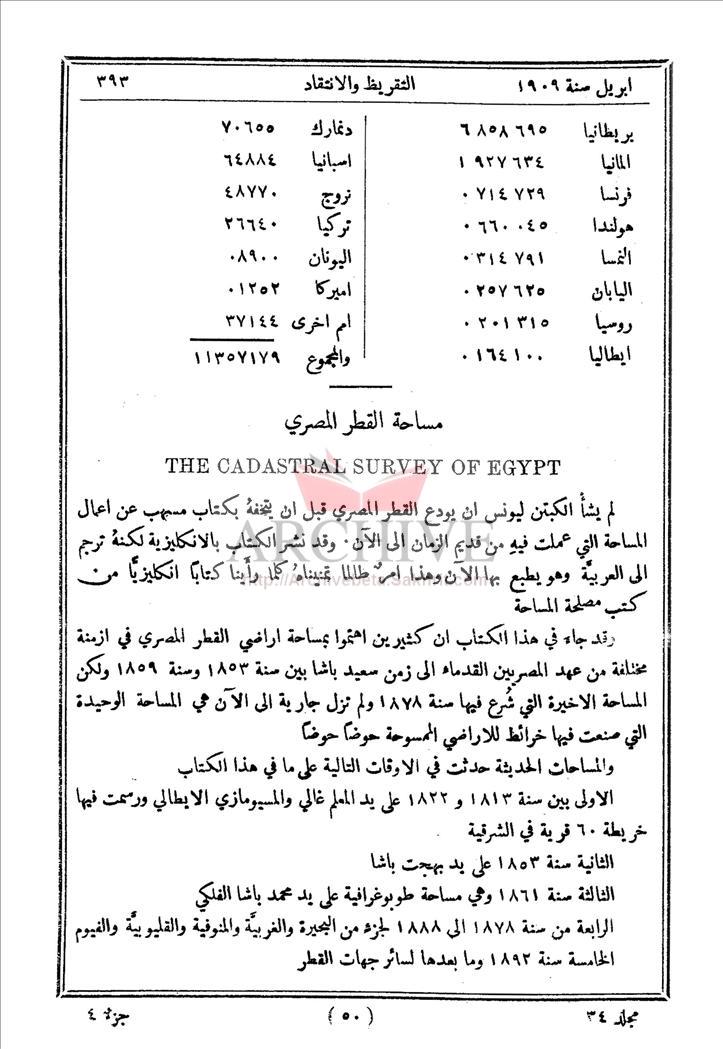 ابريل سنة ١٩٠٩ التقريظ والانتقاد ٣٩٣
بريطانيا ٦ ٨٥٨ ٦٩٥
المانيا ١ ٩٢٧ ٦٣٤
فرنسا ٠ ٧١٤ ٧٢٩
هولندا ٠ ٦٦٠ ٠٤٥
النمسا ٠ ٣١٤ ٧٩١
اليابان ٠ ٢٥٧ ٦٢٥
روسيا ٠ ٢٠١ ٣١٥
ايطاليا ٠ ١٦٤ ١٠٠
دنمارك ٧٠٦٥٥
اسبانيا ٦٤٨٨٤
نروج ٤٨٧٧٠
تركيا ٢٦٦٤٠
اليونان ٠٨٩٠٠
اميركا ٠١٢٥٢
امم اخرى ٣٧١٤٤
والمجموع ١١٣٥٧١٧٩
مساحة القطر المصري
THE CADASTRAL SURVEY OF EGYPT
لم يشأ الكبتن ليونس ان يودع القطر المصري قبل ان يتحفهُ بكتاب مسهب عن اعمال
المساحة التي عملت فيهِ من قديم الزمان الى الآن. وقد نشر الكتاب بالانكليزية لكنهُ ترجم
الى العربيَّة وهو يطبع بها الآن وهذا امرٌ طالما تمنيناهُ كلما رأينا كتابًا انكليزيًّا من
كتب مصلحة المساحة
وقد جاء في هذا الكتاب ان كثيرين اهتموا بمساحة اراضي القطر المصري في ازمنة
مختلفة من عهد المصريين القدماء الى زمن سعيد باشا بين سنة ١٨٥٣ وسنة ١٨٥٩ ولكن
المساحة الاخيرة التي شُرع فيها سنة ١٨٧٨ ولم تزل جارية الى الآن هي المساحة الوحيدة
التي صنعت فيها خرائط للاراضي الممسوحة حوضًا حوضًا
والمساحات الحديثة حدثت في الاوقات التالية على ما في هذا الكتاب
الاولى بين سنة ١٨١٣ و ١٨٢٢ على يد المعلم غالي والمسيومازي الايطالي ورسمت فيها
خريطة ٦٠ قرية في الشرقية
الثانية سنة ١٨٥٣ على يد بهجت باشا
الثالثة سنة ١٨٦١ وهي مساحة طوبوغرافية على يد محمد باشا الفلكي
الرابعة من سنة ١٨٧٨ الى ١٨٨٨ لجزء من البحيرة والغربيَّة والمنوفية والقليوبيَّة والفيوم
الخامسة سنة ١٨٩٢ وما بعدها لسائر جهات القطر
مجلد ٣٤ (٥٠) جزء ٤
ARCHIVE